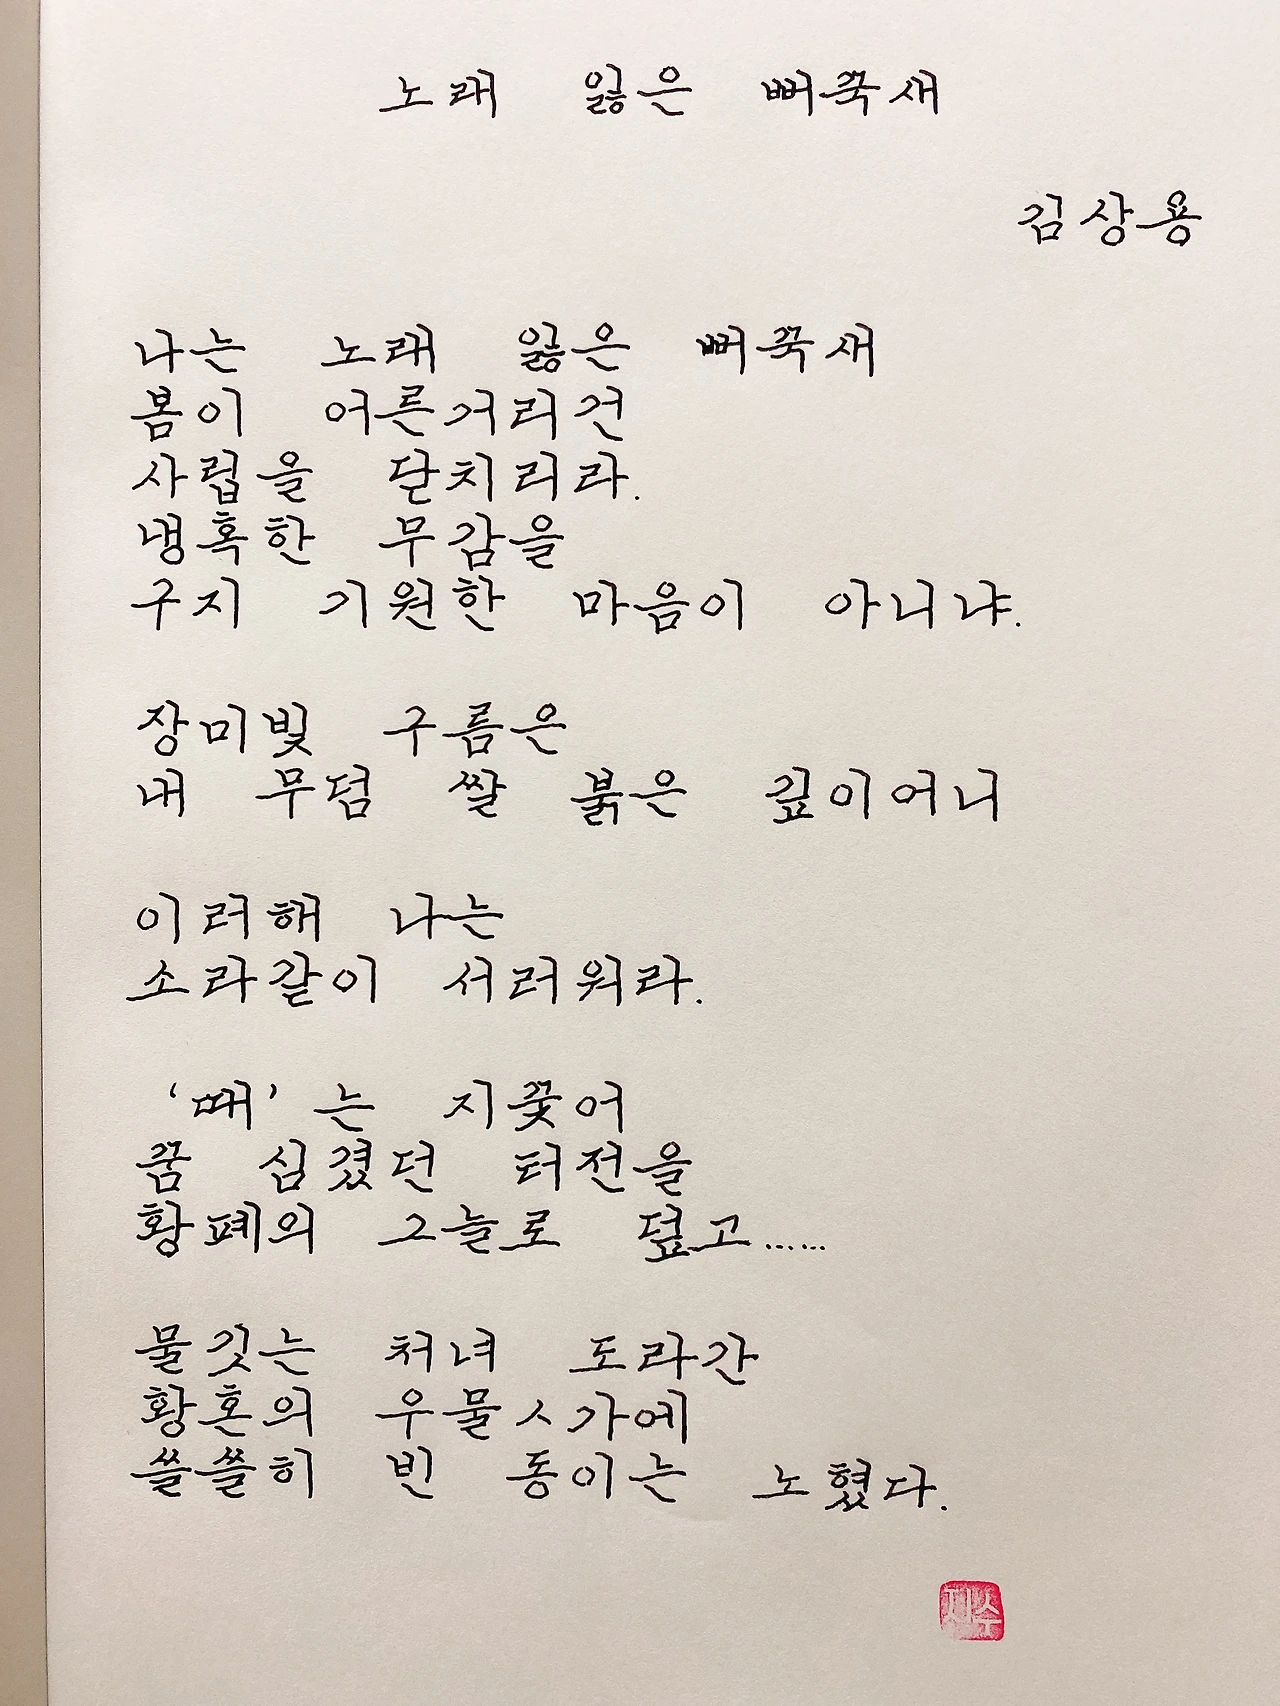 노래 잃은 뻐꾹새
김상용
나는 노래 잃은 뻐꾹새
봄이 어른거리건
사립을 닫치리라.
냉혹한 무감을
구지 기원한 마음이 아니냐.
장미빛 구름은
내 무덤 쌀 붉은 깊이어니
이러해 나는
소라같이 서러워라.
'때'는 지꽂어
꿈 심겼던 터전을
황폐의 그늘로 덮고……
물깃는 처녀 도라간
황혼의 우물ㅅ가에
쓸쓸히 빈 동이는 노혔다.
지수